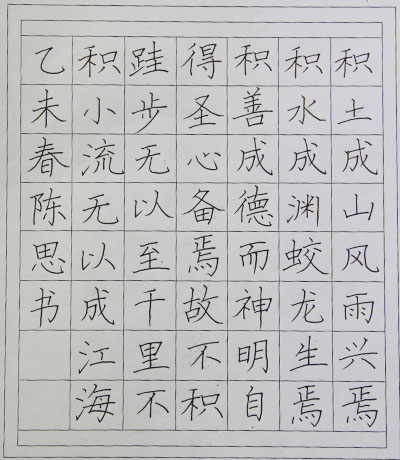 积土成山风雨兴焉
积水成渊蛟龙生焉
积善成德而神明自
得圣心备焉故不积
跬步无以至千里不
积小流无以成江海
乙未春陈思书